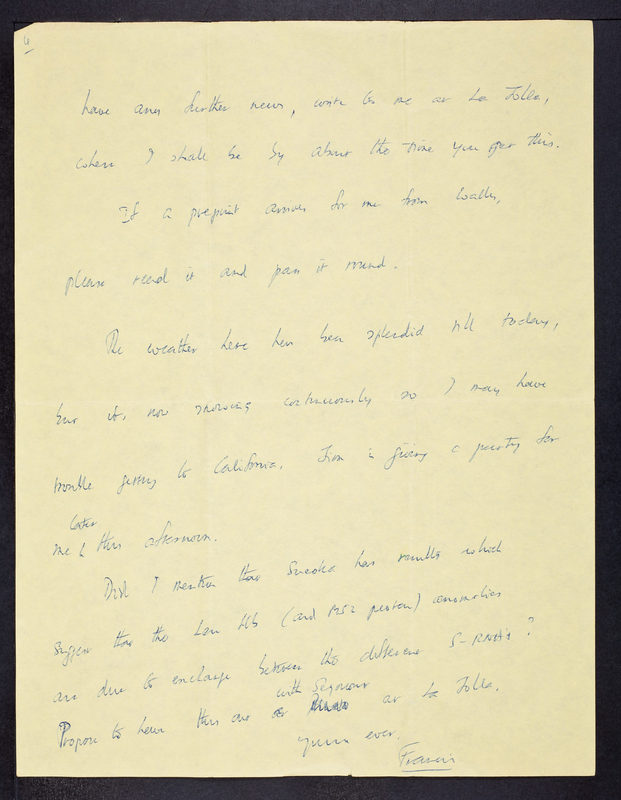 4
have any further news, write to me at La Jolla,
when I shall be by about the time you get this.
If a preprint arrives for me from Wally,
please read it and pass it round.
The weather here has been splendid till today,
but it's now snowing continuously so I may have
trouble getting to California. Jim is giving a party for
me later this afternoon.
Did I mention that Sueoka has results which
suggest that the Leu (and protein) anomalies
are due to exchange between the different S-RNA's?
Propose to hear this one with Seymour at La Jolla.
yours ever.
Francis